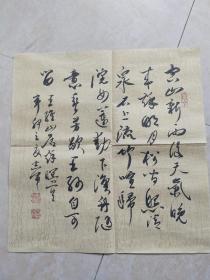 空山新雨後天氣晚
來秋明月松間照清
泉石上流竹喧歸
浣女蓮動下漁舟隨
意春芳歇王孫自可
留 王維山居秋暝
辛卯之夏